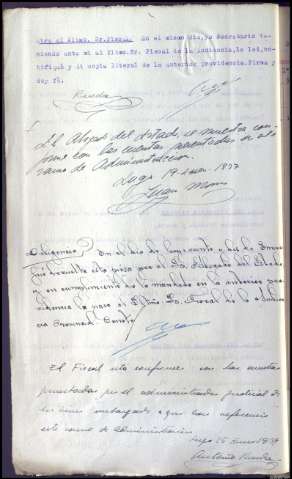 Otra al Iltmo. Sr. Fiscal.- En el mismo dia, yo Secretario te-
niendo ante mí al Iltmo. Sr. Fiscal de la Audiencia, le leí, no-
tifiqué y dí copia literal de la anterior providencia. Firma y
doy fé.
El Abogado del Estado se muestra con-
forme con las cuentas presentadas en el
ramo de Administracion.
Lugo 19 enero 1937
Diligencia / En el dia de Enero
este pieza por el Sr. Abogado del Estado
y en cumplimiento de lo mandado en la anterior pro-
videncia la paso al Iltmo. Sr. Fiscal de la Audien-
cia Provincial. Doy fé
El Fiscal está conforme con las cuentas
presentadas por el administrador judicial de
los bienes embargados a que hace referencia
este ramo de administración
Lugo 25 Enero 1937